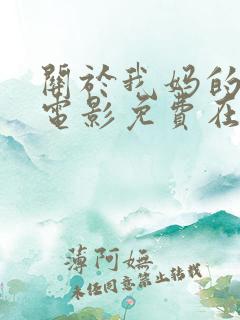 關於我媽的
電影免費在
薄阿嫵
未经同意禁止转载